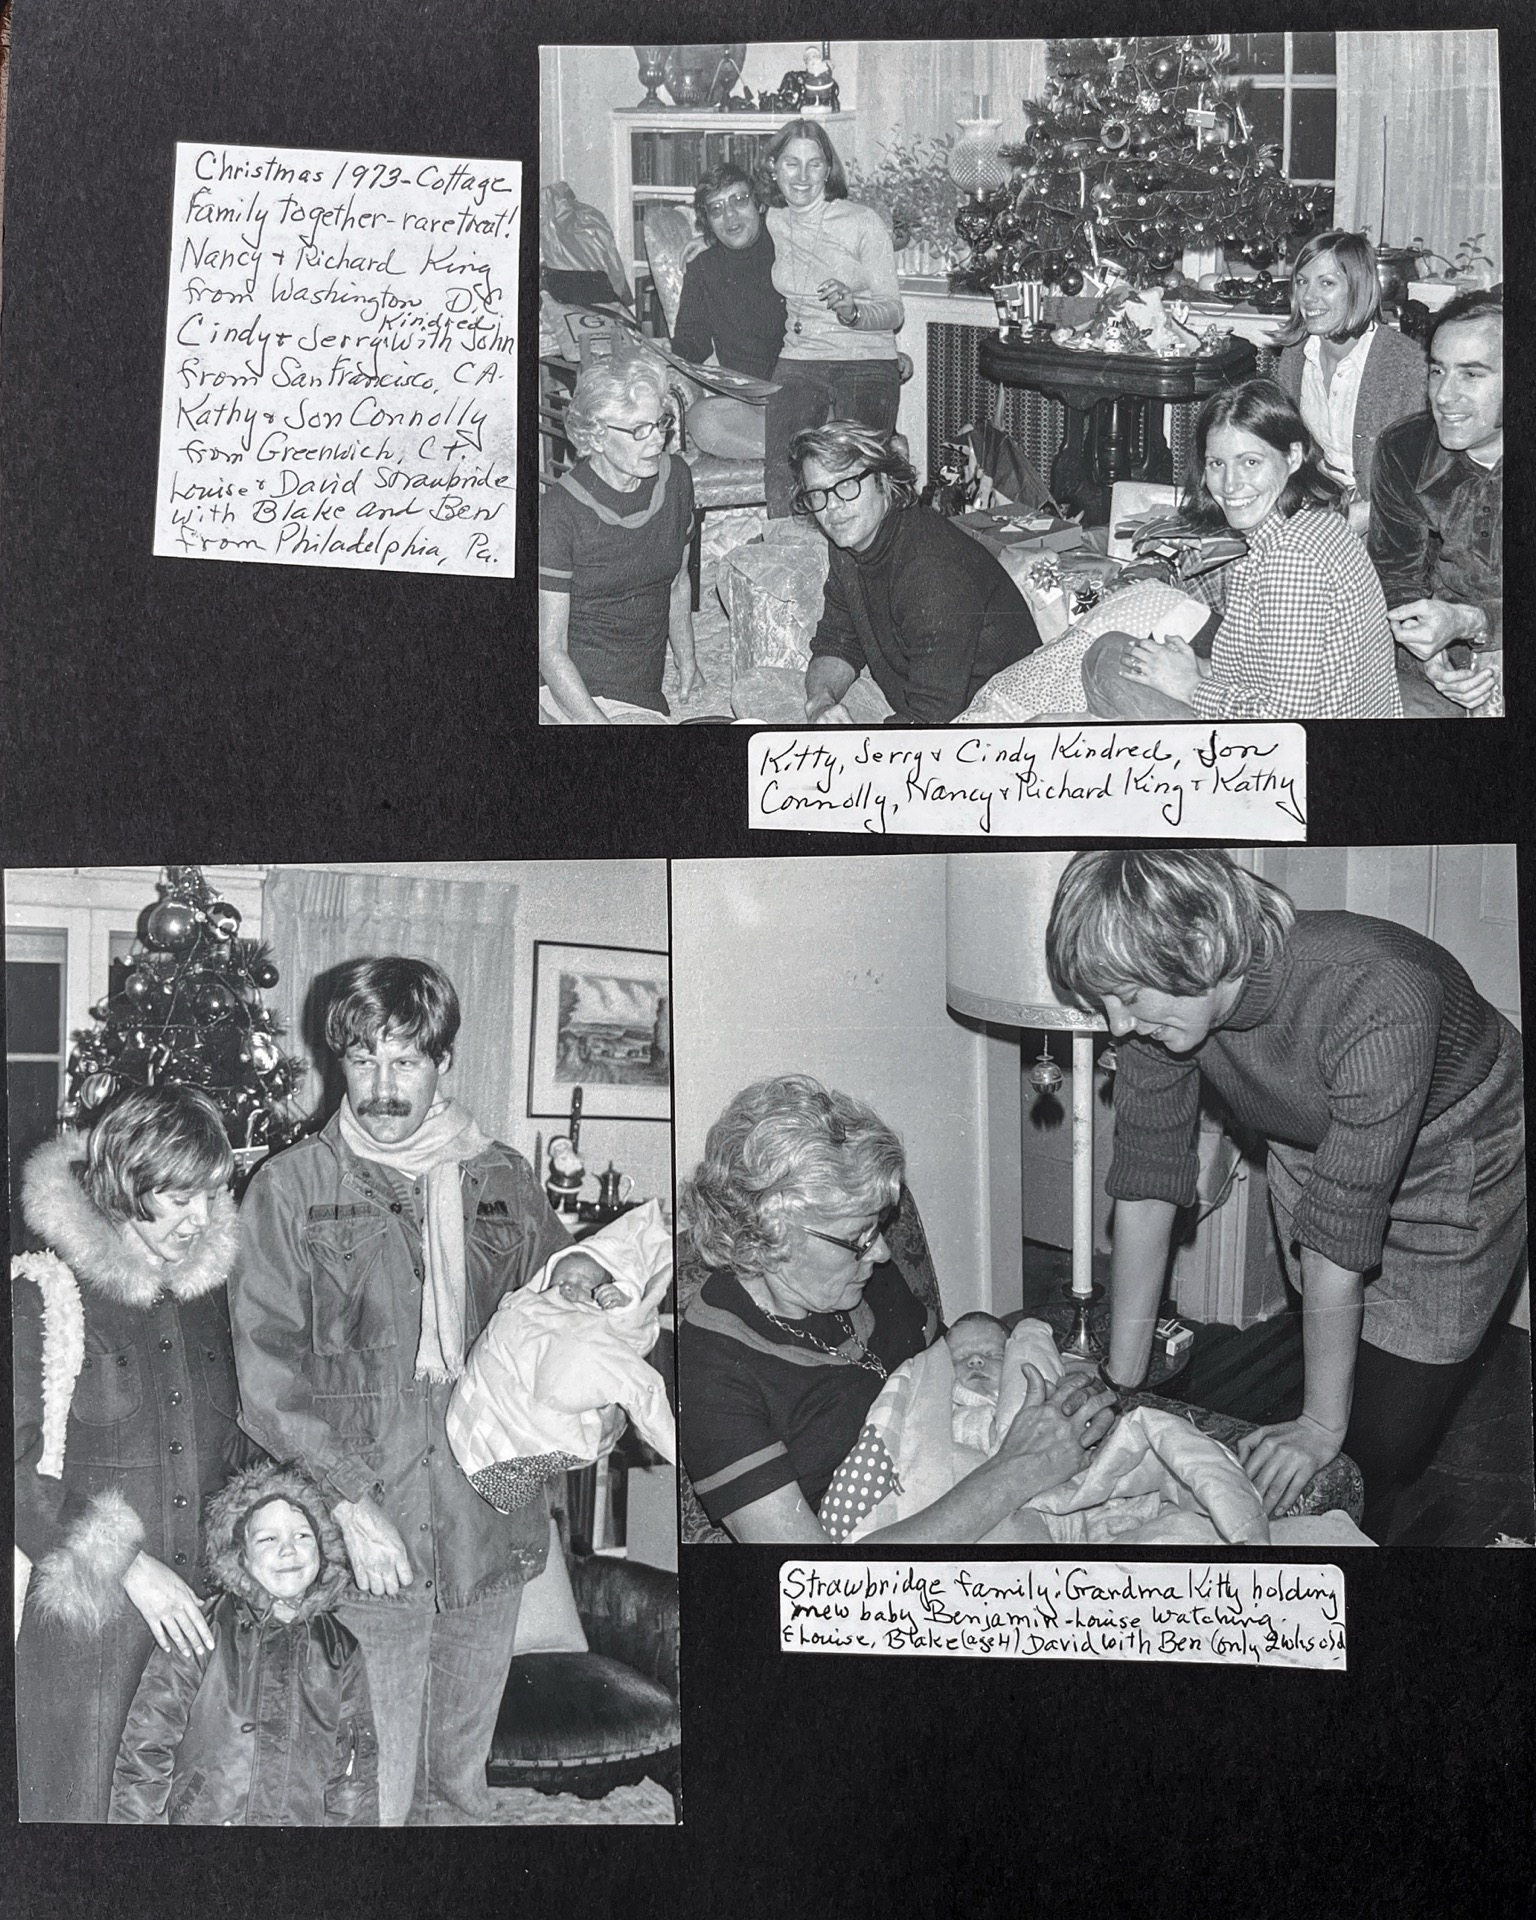 Christmas 1973-Cottage
Family together-rare treat!
Nancy + Richard King
from Washington, D.C.
Kindred,
Cindy + Jerry with John
from San Francisco, CA.
Kathy + Jon Connolly
from Greenwich, CT.
Louise + David Strawbride
with Blake and Ben
from Philadelphia, Pa.
Kitty, Jerry + Cindy Kindred, Jon
Connolly, Nancy + Richard King + Kathy
Strawbridge family: Grandma Kitty holding
new baby Benjamin-Louise watching.
& Louise, Blake (age 4) David with Ben (only 2 wks old